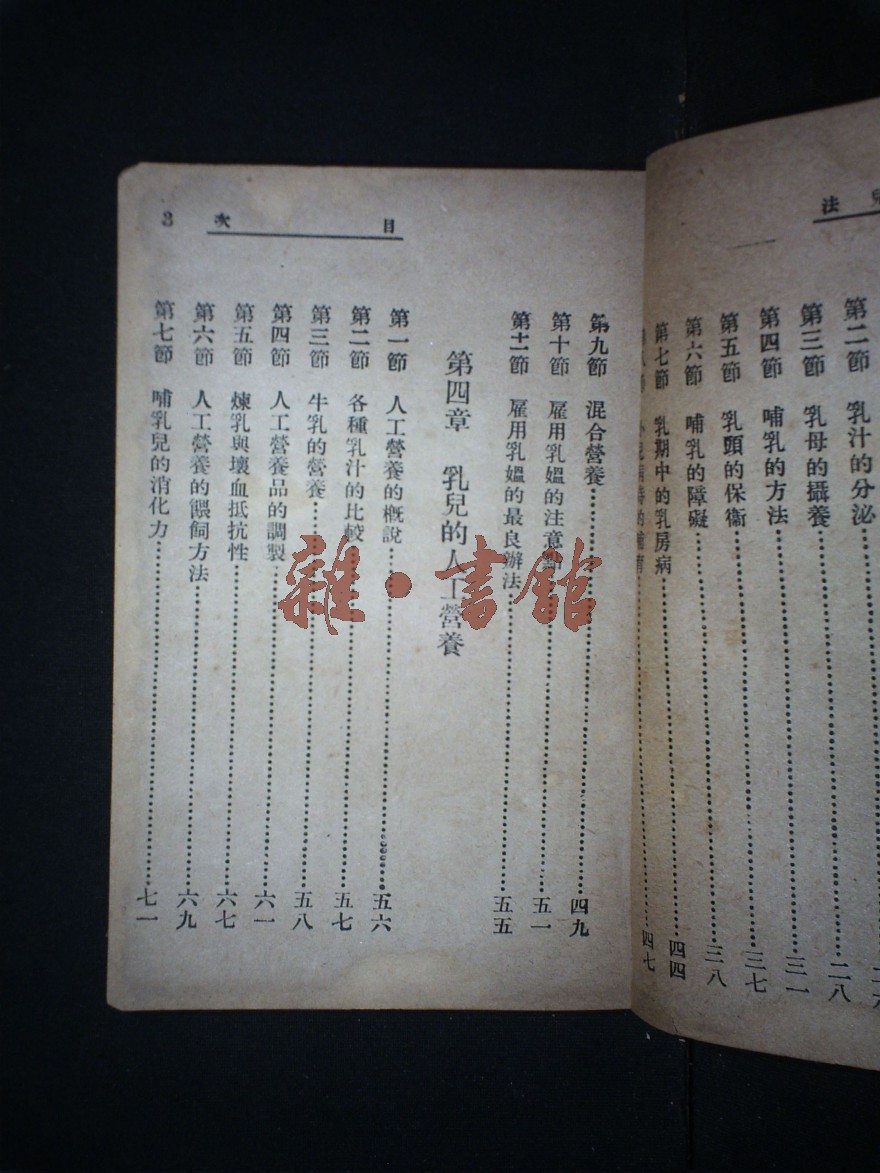 兒法
第二節 乳汁的分泌
第三節 乳母的攝養 二八
第四節 哺乳的方法 三一
第五節 乳頭的保衞 三七
第六節 哺乳的障礙 三八
第七節 乳期中的乳房病 四四
四七
目次 3
第九節 混合營養 四九
第十節 雇用乳媼的注意點 五一
第十一節 雇用乳媼的最良辦法 五五
第四章 乳兒的人工營養
第一節 人工營養的概說 五六
第二節 各種乳汁的比較 五七
第三節 牛乳的營養 五八
第四節 人工營養品的調製 六一
第五節 煉乳與壞血抵抗性 六七
第六節 人工營養的餵飼方法 六九
第七節 哺乳兒的消化力 七一
雜·書館